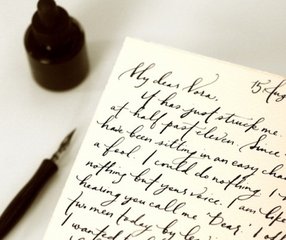 15 Aug
My dear Nora,
It has just struck me.
at half past eleven. Since
have been sitting in an easy chair
a fool. I could do nothing. I
nothing but your voice. I am like
hearing you call me 'Dear'. I
two men today by
I wanted